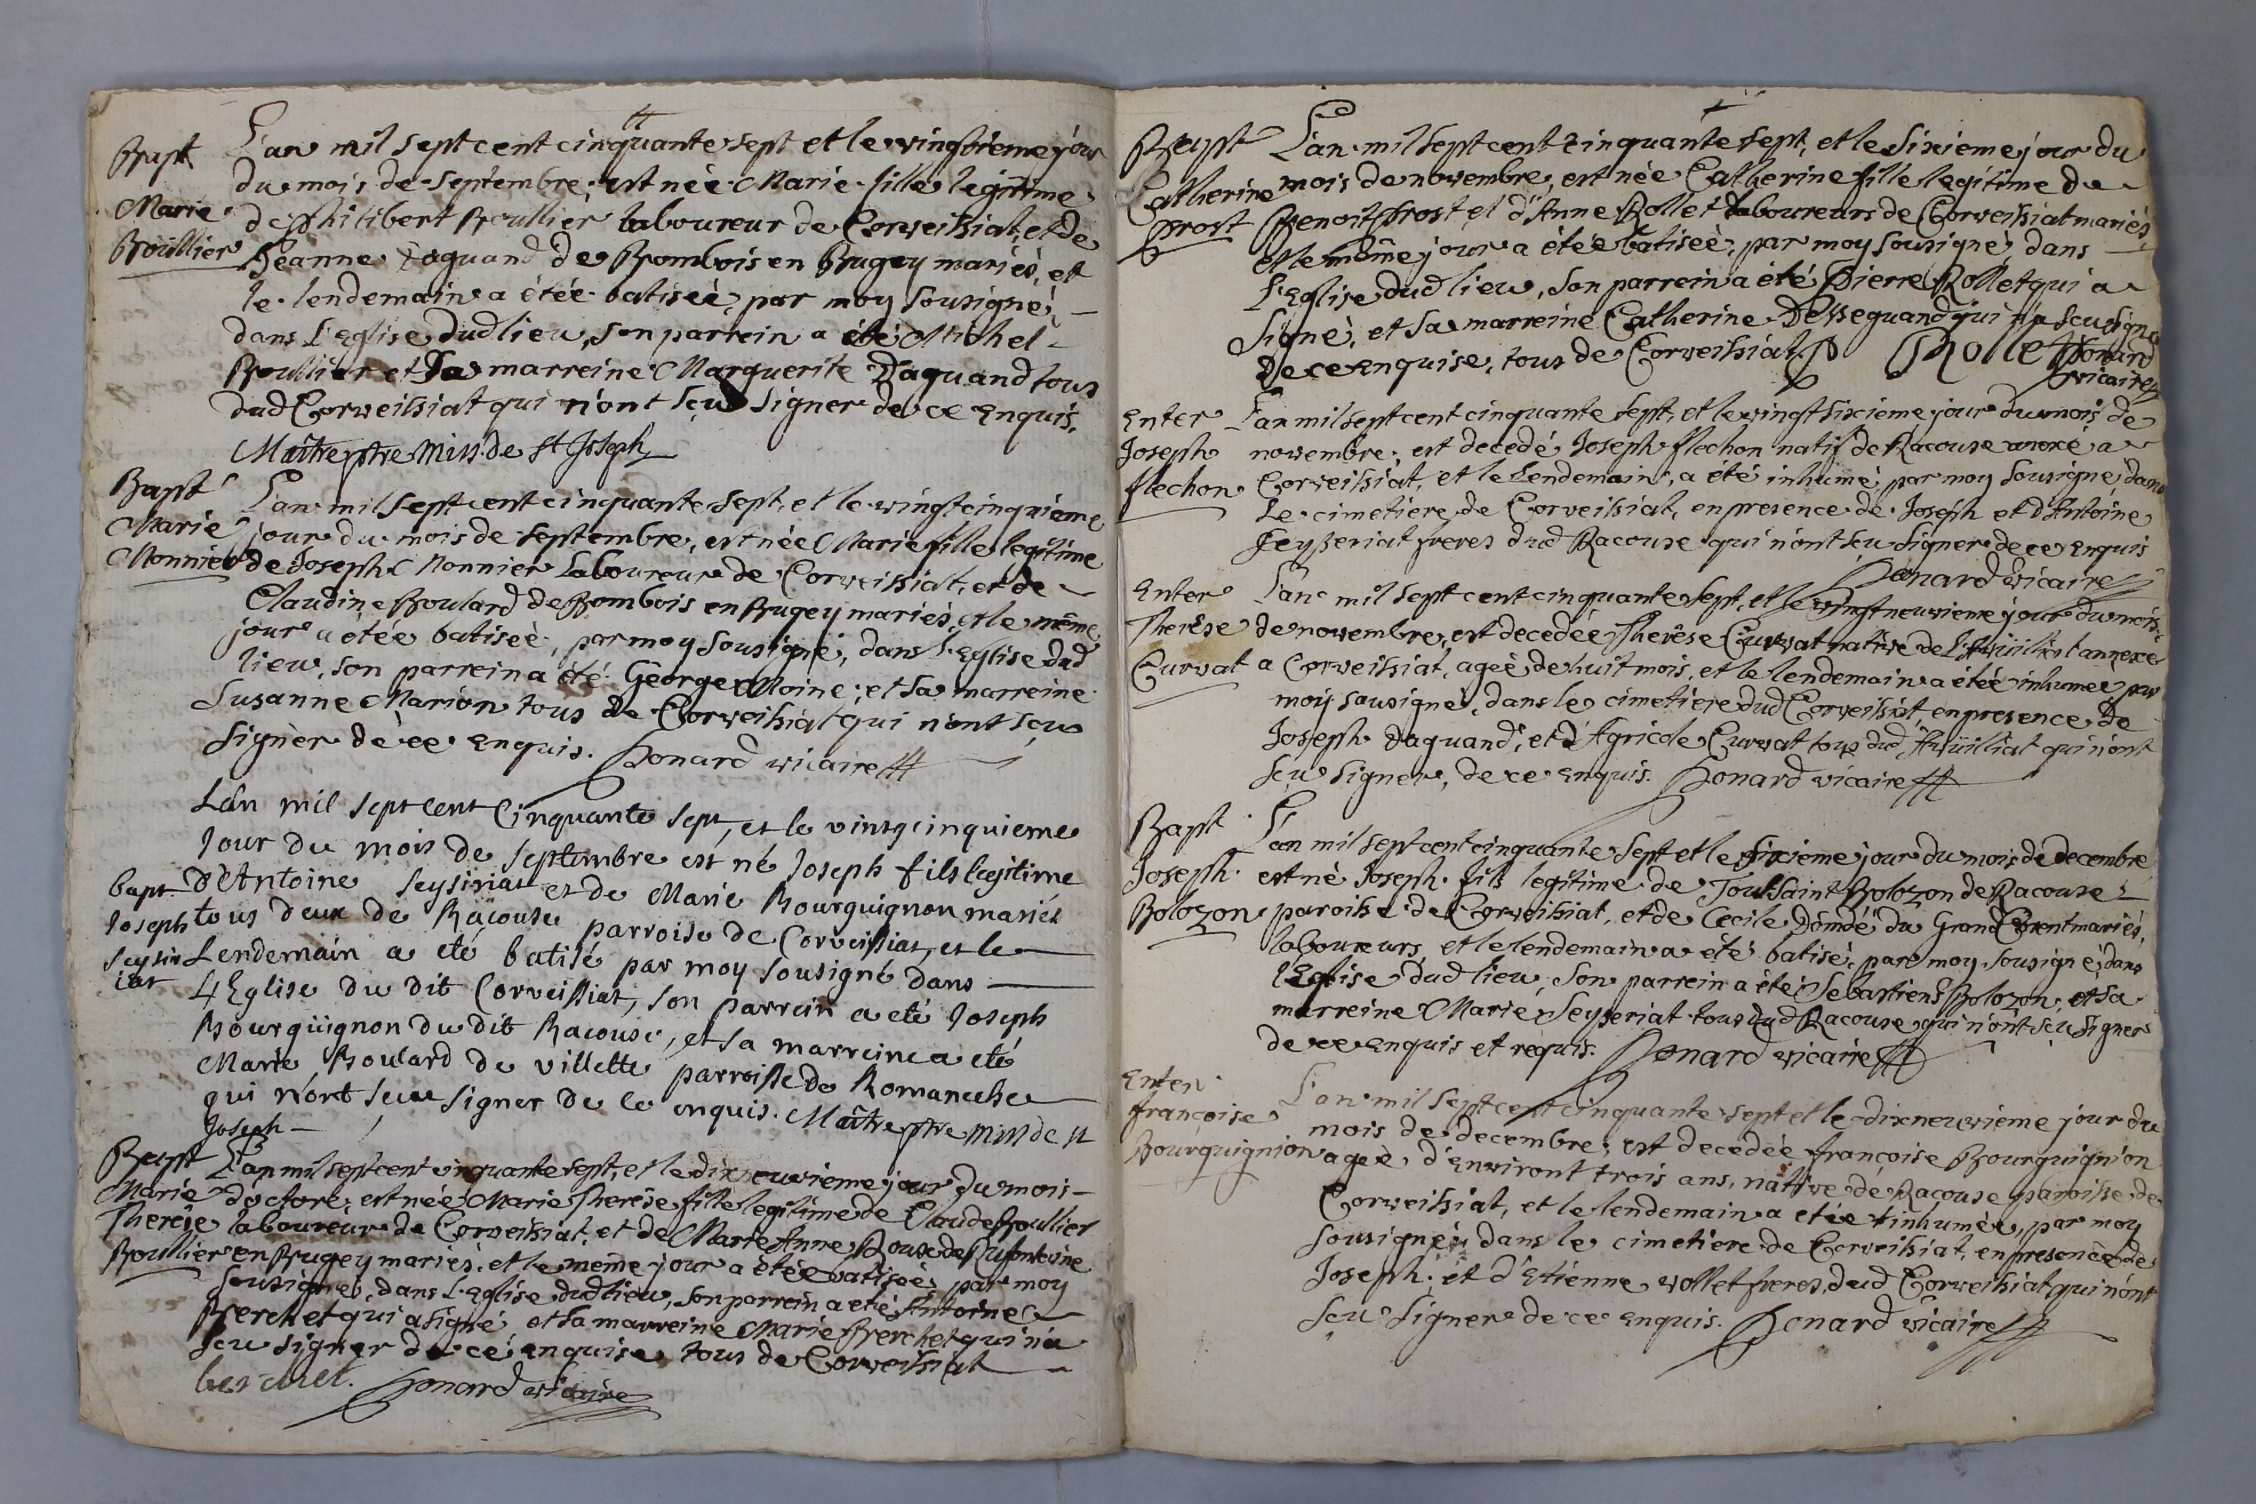 Bapt
Marie
Boüllier
L'an mil sept cent cinquante sept et le vingtrieme jour
du mois de septembre est née Marie fille legitime
de philibert Boullier laboureur de Corveissiat, et de
Jeanne Daquand de Bombois en Bugey mariés, et
le lendemain a étée batiseè, par moy sousigné,
dans L'Eglise dud lieu, son parrein a été Michel
Boullier et Sa marreine Marguerite Daquand tous
dud Corveissiat qui n'ont sçu signer de ce enquis.
Maître ptre Miss. de St Joseph
Bapt
Marie
Monnier
L'an mil sept cent cinquante sept, et le vingt cinquiéme
jour du mois de septembre, est née Marie fille legitime
de Joseph Monnier Laboureur de Corveissiat, et de
Claudine Boulard de Bombois en Bugey mariés, et le même
jour a étée batiseè, par moy sousigné, dans L'Eglise dud
lieu, son parrein a été George Moine, et sa marreine
Susanne Marion tous de Corveissiat qui n'ont sçu
signer de ce enquis. Honard vicaire
bapt
Joseph
seysir
iat
L'an mil sept cent Cinquante sept, et le vintgcinquieme
Jour du mois de septembre est né Joseph fils legitime
D'Antoine seysiriat et de Marie Bourguignon mariés
tous deux de Racouse parroise de Corveissiat, et le
Lendemain a eté batisé par moy sousigné dans
L'Eglise du dit Corveissiat, son parrein a eté Joseph
Bourgüignon du dit Racouse, et sa marreine a eté
Marie Boulard de villette parroisse de Romaneche
qui n'ont sceu signer de ce enquis. Maître ptre Miss de st
Joseph
Bapt
Marie
Therése
Boullier
L'an mil sept cent cinquante sept, et le dix neuvieme jour du mois
d'octore, est née Marie Therése fille legitime de Claude Boullier
laboureur de Corveissiat, et de Marie Anne Roux de Rufontaine
en Bugey mariés, et le même jour a étée batiseè, par moy
sousigné, dans L'Eglise dud lieu, son parrein a eté Antoine
Berchet qui a signé et sa marreine Marie Berchet qui n'a
sçu signer de ce enquise tous de Corveissiat
berchet. Honard vicaire
Bapt
Catherine
prost
L'an mil sept cent cinquante sept, et le sixieme jour du
mois de novembre, est née Catherine fille legitime de
Benoit prost, et d'Anne Rollet laboureurs de Corveissiat mariés,
et le même jour a étée batiseè, par moy sousigné, dans
L'Eglise dud lieu, son parrein a été Pierre Rollet qui a
signé, et sa marreine Catherine Desseguand qui n'a sçu signer
de ce enquise, tous de Corveissiat. P Rollet Honard
vicaire
Enter
Joseph
flechon
L'an mil sept cent cinquante sept, et le vingt sixieme jour du mois de
novembre, est decedé Joseph flechon natif de Racouse anexé a
Corveissiat, et le Lendemain, a été inhumé, par moy sousigné, dans
Le cimetiere de Corveissiat, en presence de Joseph et d'Antoine
Seyseriat freres dud Racouse qui n'ont sçu signer de ce enquis
Honard vicaire
Enter
Therése
Curvat
L'an mil sept cent cinquante sept, et le vingt neuvieme jour du mois
de novembre, est decedée Therése Curvat native de annexe
a Corveissiat, ageè de huit mois, et le lendemain a étée inhumée par
moy sousigné, dans le cimetiere dud Corveissiat, en presence de
Joseph Daquand, et d'Agricole Curvat tous dud qui n'ont
sçu signer, de ce enquis. Honard vicaire
Bapt
Joseph
Bolozon
L'an mil sept cent cinquante sept et le sixieme jour du mois de decembre
est né Joseph fils legitime de Toussaint Bolozon de Racouse
paroisse de Corveissiat, et de Cecile Dondé du Grand Corent mariés,
laboureurs, et le lendemain a eté batisé, par moy sousigné, dans
l'Eglise dud lieu, son parrein a été Sebastien Bolozon, et sa
marreine Marie Seyseriat tous dud Racouse qui n'ont sçu signer
de ce enquis et requis. Honard vicaire
Enter
françoise
Bourguignion
L'an mil sept cent cinquante sept et le dix neuvieme jour du
mois de decembre, est decedée françoise Bourguignion
ageè d'environt trois ans, native de Racouse paroisse de
Corveissiat, et le lendemain a etée inhumée, par moy
sousigné, dans le cimetiere de Corveissiat, en presence de
Joseph, et d'Etienne vollet freres, dud Corveissiat qui n'ont
sçu signer de ce enquis. Honard vicaire